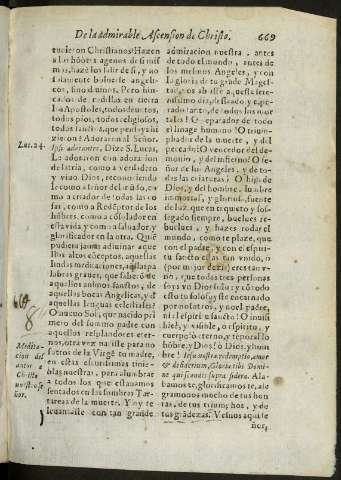 De la admirable Ascension de Christo. 669
tuuieron Christianos? Hazen
a las hõbres agenos de si mis
mos, haze los salir de si, y no
solamente boluerse angeli-
cos, sino diuinos. Pero hin-
cados de rodillas en tierra
los Apostoles, todos deuotos,
todos pios, todos religiosos,
todos sanctos, que pensays hi
zieron? Adoraron al Señor.
Luc. 24.
Ipsi adorantes, Dize S. Lucas,
La adoraron con adoracion
de latria, como a verdadero
y viuo Dios, reconociendo
le como a señor del mũdo, co
mo a criador de todas las co
sas, como a Redẽptor de los
hõbres, como a cõsolador en
esta vida y como a saluador y
glorificador en la otra. Quiẽ
pudiera jamas adiuinar aque
llos altos cõceptos, aquellas
lindas meditaciones, aquellas pa
labras graues, que saldrẽ de
aquellos animos sanctos, de
aquellas bocas Angelicas, d'
aquellas lenguas celestiales?
O nueuo Sol, que nacido pri
mero del summo padre con
aquellos resplandores eter-
nos, otra vez naciste para no
sotros de la Virgẽ tu madre,
en estas escurissimas tinie-
blas nuestras, pera alumbrar
a todos los que estauamos
sentados con las sombras Tar-
tareas de la muerte. Y oy te
leuantaste con tan grande
Medita-
cion del
autor a
Christo
nuestro se
ñor.
admiracion nuestra, antes
de todo el mundo, antes
de los mesmos Angeles, y con
la gloria de tu grande Mages-
tad, nos abriste aqueste seten-
trion diziplinado, y tape-
rado tanto, de todos los mor
tales! O reparador de todo
el linage humano! O trium-
phador de la muerte, y del
peccado! O vencedor del de-
monio, y del infierno! O se-
ñor de los Angeles, y de to-
das las criaturas! O hijo de
Dios, y del hombre, lumbre
inmortal, y gloriosa, fuente
de luz, que en ti queto y sos-
segado siempre, buelues re-
buelues, y hazes rodar el
mundo, como te plaze, que
con el padre, y con el espiri-
tu sancto estas tan vnido, o
(por mejor dezir) eres tan v-
no, que todas tres personas
soys vn Dios solo: y cõ todo
esto tu solo fuyste encarnad
por nosotros, y no el padre,
ni el spiritu sancto! O inuisi-
bible, y visible, o spiritu, y
cuerpo! o eterno, y tẽporal! o
hõbre, y Dios! ô Dios, y hum
bre! Iesu nostra redemptio, amor
& desiderium, Gloria tibi Domi-
ne qui scandis supra sidera. Ala-
bamos te, glorificamos te, ale
gramonos mucho de tus hon
ras, de tus triumphos, y de
tus grãdezas. Ves nos aqui se
ñor,